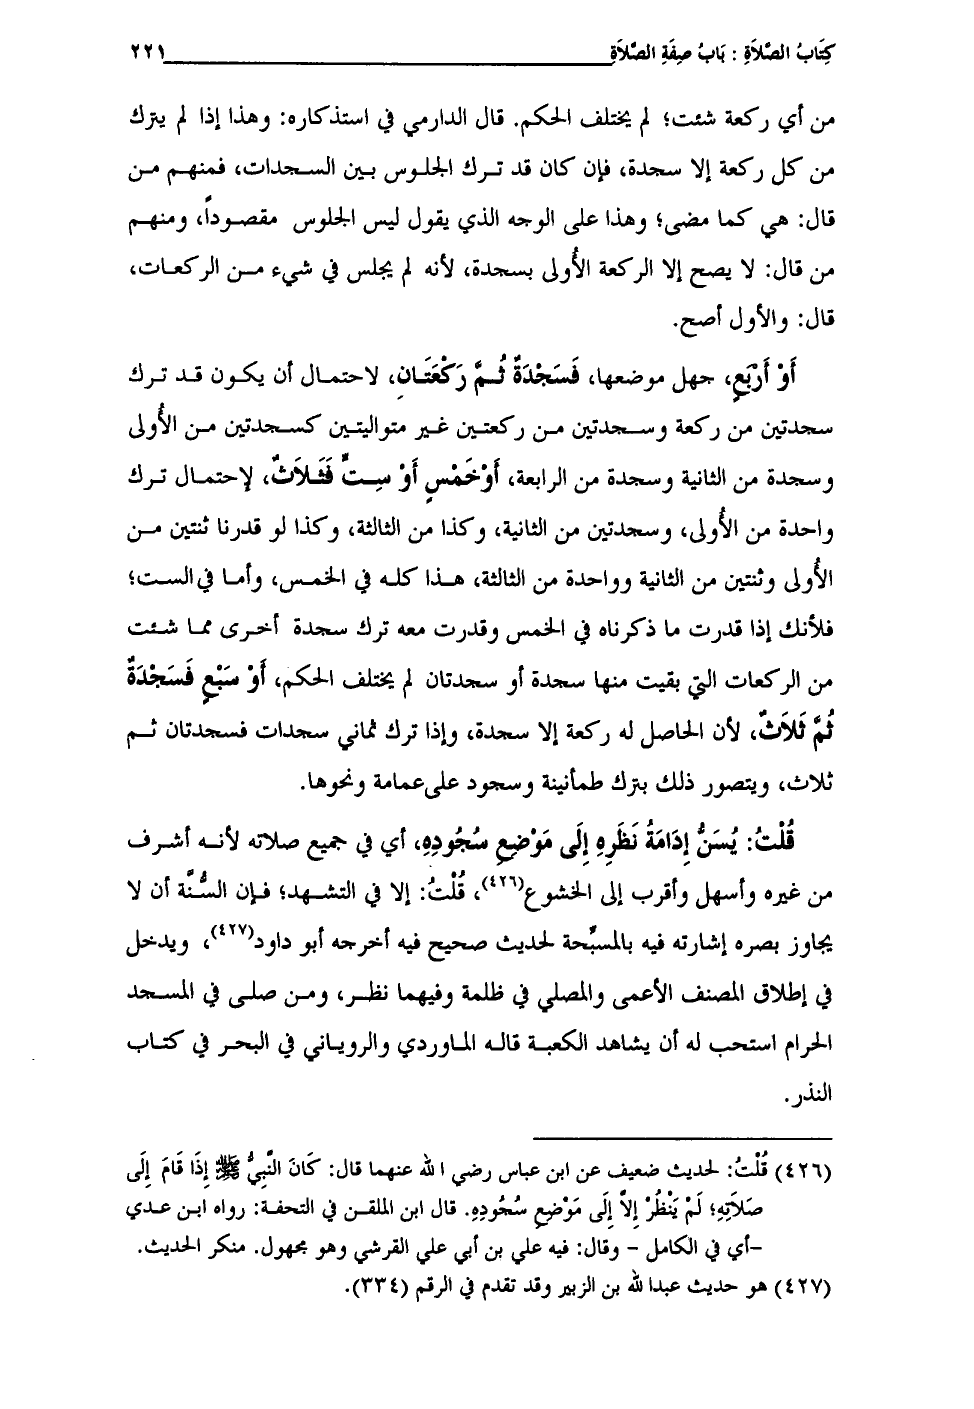 كِتَابُ الصَّلاَةِ : بَابُ صِفَةِ الصَّلاَةِ ٢٢١
من أي ركعة شئت؛ لم يختلف الحكم. قال الدارمي في استذكاره: وهذا إذا لم يترك
من كل ركعة إلا سجدة، فإن كان قد ترك الجلوس بين السجدات، فمنهم من
قال: هي كما مضى؛ وهذا على الوجه الذي يقول ليس الجلوس مقصوداً، ومنهم
من قال: لا يصح إلا الركعة الأُولى بسجدة، لأنه لم يجلس في شيء من الركعات،
قال: والأول أصح.
أَوْ أَرْبَعٍ، جهل موضعها، فَسَجْدَةٌ ثُمَّ رَكْعَتَانِ، لاحتمال أن يكون قد ترك
سجدتين من ركعة وسجدتين من ركعتين غير متواليتين كسجدتين من الأُولى
وسجدة من الثانية وسجدة من الرابعة، أَوْ خَمْسٍ أَوْ سِتٌّ فَثَلاَثٌ، لإحتمال ترك
واحدة من الأُولى، وسجدتين من الثانية، وكذا من الثالثة، وكذا لو قدرنا ثنتين من
الأُولى وثنتين من الثانية وواحدة من الثالثة، هذا كله في الخمس، وأما في الست؛
فلأنك إذا قدرت ما ذكرناه في الخمس وقدرت معه ترك سجدة أخرى مما شئت
من الركعات التي بقيت منها سجدة أو سجدتان لم يختلف الحكم، أَوْ سَبْعٍ فَسَجْدَةٌ
ثُمَّ ثَلاَثٌ، لأن الحاصل له ركعة إلا سجدة، وإذا ترك ثماني سجدات فسجدتان ثم
ثلاث، ويتصور ذلك بترك طمأنينة وسجود على عمامة ونحوها.
قُلْتُ: يُسَنُّ إِدَامَةُ نَظَرِهِ إِلَى مَوْضِعِ سُجُودِهِ، أي في جميع صلاته لأنه أشرف
من غيره وأسهل وأقرب إلى الخشوع(٤٢٦)، قُلْتُ: إلا في التشهد؛ فإن السُّنَّة أن لا
يجاوز بصره إشارته فيه بالمسبِّحة لحديث صحيح فيه أخرجه أبو داود(٤٢٧)، ويدخل
في إطلاق المصنف الأعمى والمصلي في ظلمة وفيهما نظر، ومن صلى في المسجد
الحرام استحب له أن يشاهد الكعبة قاله الماوردي والروياني في البحر في كتاب
النذر.
(٤٢٦) قُلْتُ: لحديث ضعيف عن ابن عباس رضي الله عنهما قال: كَانَ النَّبِيُّ ﷺ إِذَا قَامَ إِلَى
صَلاَتِهِ؛ لَمْ يَنْظُرْ إِلاَّ إِلَى مَوْضِعِ سُجُودِهِ. قال ابن الملقن في التحفة: رواه ابن عدي
–أي في الكامل – وقال: فيه علي بن أبي علي القرشي وهو مجهول. منكر الحديث.
(٤٢٧) هو حديث عبدالله بن الزبير وقد تقدم في الرقم (٣٣٤).